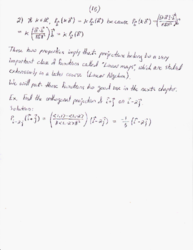 (15)
2) If k∈ℝ, P_b(k a) = k P_b(a) because P_b(k a) =
= k P_b(a)
These two properties imply that projections belong to a very
important class of functions called "linear maps", which are studied
extensively in a later course (Linear Algebra).
We will put these functions to good use in the next chapter.
Ex. Find the orthogonal projection of i+j on i-2j
Solution:
P_{i-2j}(i+j) = (i-2j) = -1/5 (i-2j)